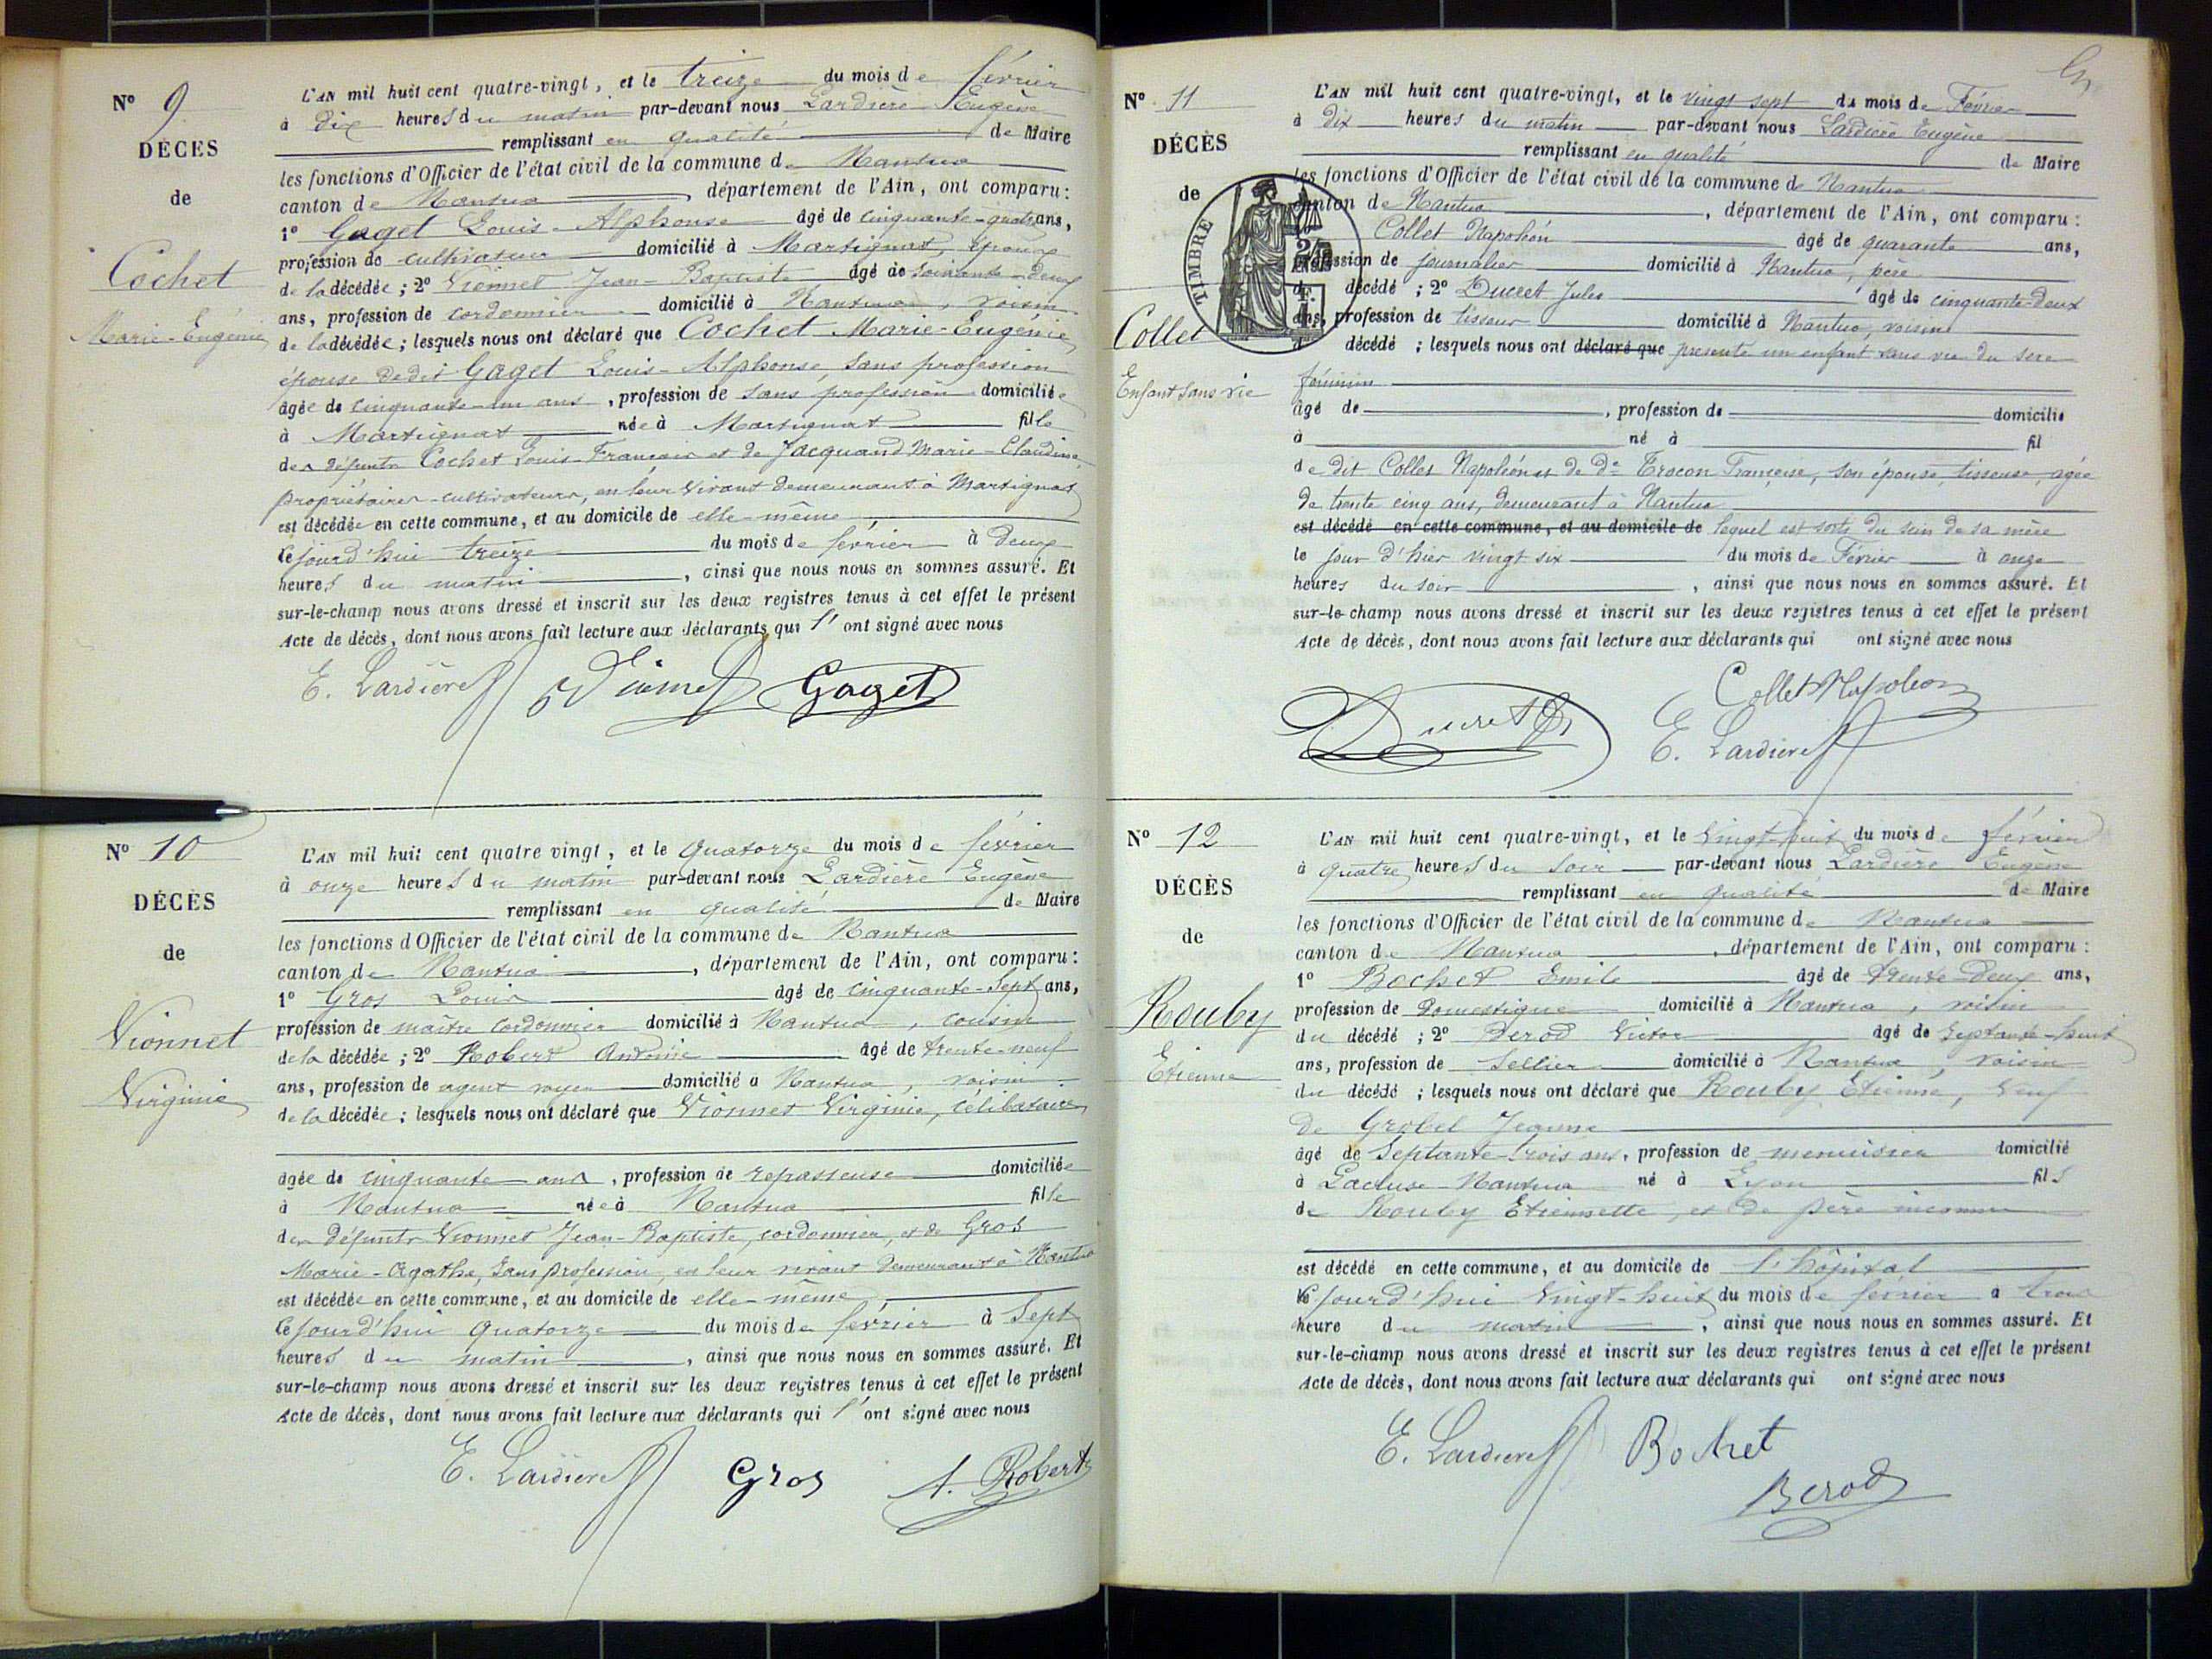 N° 9
DÉCES
de
Cochet
Marie-Eugénie
L'AN mil huit cent quatre-vingt, et le treize du mois de février
à dix heures du matin par-devant nous Lardière Eugène
remplissant en qualité de Maire
les fonctions d'Officier de l'état civil de la commune de Nantua
canton de Nantua, département de l'Ain, ont comparu:
1° Gaget Louis-Alphonse âgé de cinquante-quatre ans,
profession de cultivateur domicilié à Martignat, époux
de la décédée; 2° Vionnet Jean-Baptiste âgé de soixante-deux
ans, profession de cordonnier domicilié à Nantua, voisin
de la décédée; lesquels nous ont déclaré que Cochet Marie-Eugénie
épouse dudit Gaget Louis-Alphonse, sans profession
âgée de cinquante-un ans, profession de sans profession domiciliée
à Martignat née à Martignat fille
des défunts Cochet Louis-François et de Jacquand Marie-Claudine,
propriétaires-cultivateurs, en leur vivant demeurant à Martignat
est décédée en cette commune, et au domicile de elle-même
cejourd'hui treize du mois de février à deux
heures du matin, ainsi que nous nous en sommes assuré. Et
sur-le-champ nous avons dressé et inscrit sur les deux registres tenus à cet effet le présent
Acte de décès, dont nous avons fait lecture aux déclarants qui l'ont signé avec nous
E. Lardière Vionnet Gaget
N° 10
DÉCÈS
de
Vionnet
Virginie
L'AN mil huit cent quatre vingt, et le quatorze du mois de février
à onze heures du matin par-devant nous Lardière Eugène
remplissant en qualité de Maire
les fonctions d'Officier de l'état civil de la commune de Nantua
canton de Nantua, département de l'Ain, ont comparu:
1° Gros Louis âgé de cinquante-sept ans,
profession de maître cordonnier domicilié à Nantua, cousin
de la décédée; 2° Robert Antoine âgé de trente-neuf
ans, profession de agent voyer domicilié à Nantua, voisin
de la décédée; lesquels nous ont déclaré que Vionnet Virginie, célibataire
âgée de cinquante ans, profession de repasseuse domiciliée
à Nantua née à Nantua fille
des défunts Vionnet Jean-Baptiste, cordonnier, et de Gros
Marie-Agathe, sans profession, en leur vivant demeurant à Nantua
est décédée en cette commune, et au domicile de elle-même
cejourd'hui quatorze du mois de février à sept
heures du matin, ainsi que nous nous en sommes assuré. Et
sur-le-champ nous avons dressé et inscrit sur les deux registres tenus à cet effet le présent
Acte de décès, dont nous avons fait lecture aux déclarants qui l'ont signé avec nous
E. Lardière Gros A. Robert
N° 11
DÉCÈS
de
Collet
Enfant sans vie
TIMBRE
L'AN mil huit cent quatre-vingt, et le vingt sept du mois de Février
à dix heures du matin par-devant nous Lardière Eugène
remplissant en qualité de Maire
les fonctions d'Officier de l'état civil de la commune de Nantua
canton de Nantua, département de l'Ain, ont comparu:
Collet Napoléon âgé de quarante ans,
profession de journalier domicilié à Nantua, père
décédé; 2° Ducret Jules âgé de cinquante-deux
ans, profession de tisseur domicilié à Nantua, voisin
d décédé; lesquels nous ont déclaré que présenté un enfant sans vie du sexe
féminin
âgé de, profession de domicilié
à né à fil
de dit Collet Napoléon et de De Trocon Françoise, son épouse, tisseuse, agée
de trente cinq ans, demeurant à Nantua
est décédé en cette commune, et au domicile de lequel est sorti du sein de sa mère
le jour d'hier vingt six du mois de Février à onze
heures du soir, ainsi que nous nous en sommes assuré. Et
sur-le-champ nous avons dressé et inscrit sur les deux registres tenus à cet effet le présent
Acte de décès, dont nous avons fait lecture aux déclarants qui ont signé avec nous
Collet Napoléon
Ducret E. Lardière
N° 12
DÉCÈS
de
Rouby
Etienne
L'AN mil huit cent quatre-vingt, et le vingt-huit du mois de février
à quatre heures du soir par-devant nous Lardière Eugène
remplissant en qualité de Maire
les fonctions d'Officier de l'état civil de la commune de Nantua
canton de Nantua, département de l'Ain, ont comparu:
1° Bochet Emile âgé de trente-deux ans,
profession de Domestique domicilié à Nantua, voisin
du décédé; 2° Berod Victor âgé de septante-huit
ans, profession de sellier domicilié à Nantua, voisin
du décédé; lesquels nous ont déclaré que Rouby Etienne, veuf
de Grobel Jeanne
âgé de septante-trois ans, profession de menuisier domicilié
à Lacluse-Nantua né à Lyon fils
de Rouby Etiennette, et de père inconnu
est décédé en cette commune, et au domicile de l'hôpital
cejourd'hui vingt-huit du mois de février à trois
heure du matin, ainsi que nous nous en sommes assuré. Et
sur-le-champ nous avons dressé et inscrit sur les deux registres tenus à cet effet le présent
Acte de décès, dont nous avons fait lecture aux déclarants qui ont signé avec nous
E. Lardière Bochet
Berod